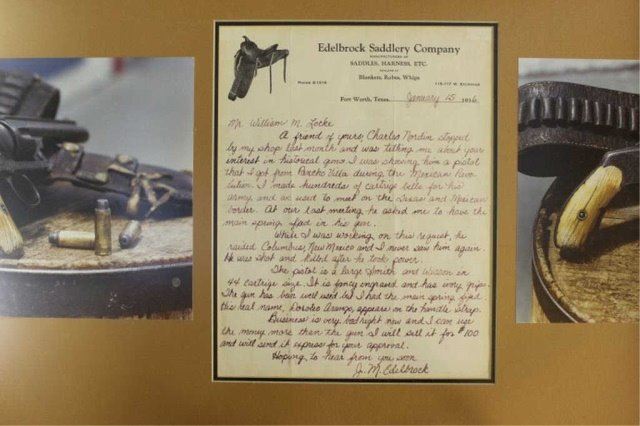 Edelbrock Saddlery Company
MANUFACTURERS OF
SADDLES, HARNESS, ETC.
DEALERS IN
Blankets, Robes, Whips
115-117 W. EXCHANGE
Fort Worth, Texas, January 15 1936
Mr. William M. Locke
A friend of yours, Charles Nordin stopped
by my shop last month and was telling me about your
interest in historical guns. I was showing him a pistol
that I got from Pancho Villa during the Mexican Revo
lution. I made hundreds of cartrige belts for his
army and we used to meet on the Texas and Mexican
border. At our last meeting he asked me to have the
main spring fixed in his gun.
While I was working on this request, he
raided Columbus, New Mexico and I never saw him again.
He was shot and killed after he took power.
The pistol is a large Smith and Wesson in
44 cartrige size. It is fancy engraved and has ivory grips.
The gun has been well used but I had the main spring fixed.
His real name, Doroteo Arango, appears on the handle strap.
Business is very bad right now and I can use
the money more than the gun. I will sell it for $100
and will send it express for your approval.
Hoping to hear from you soon
J. M. Edelbrock